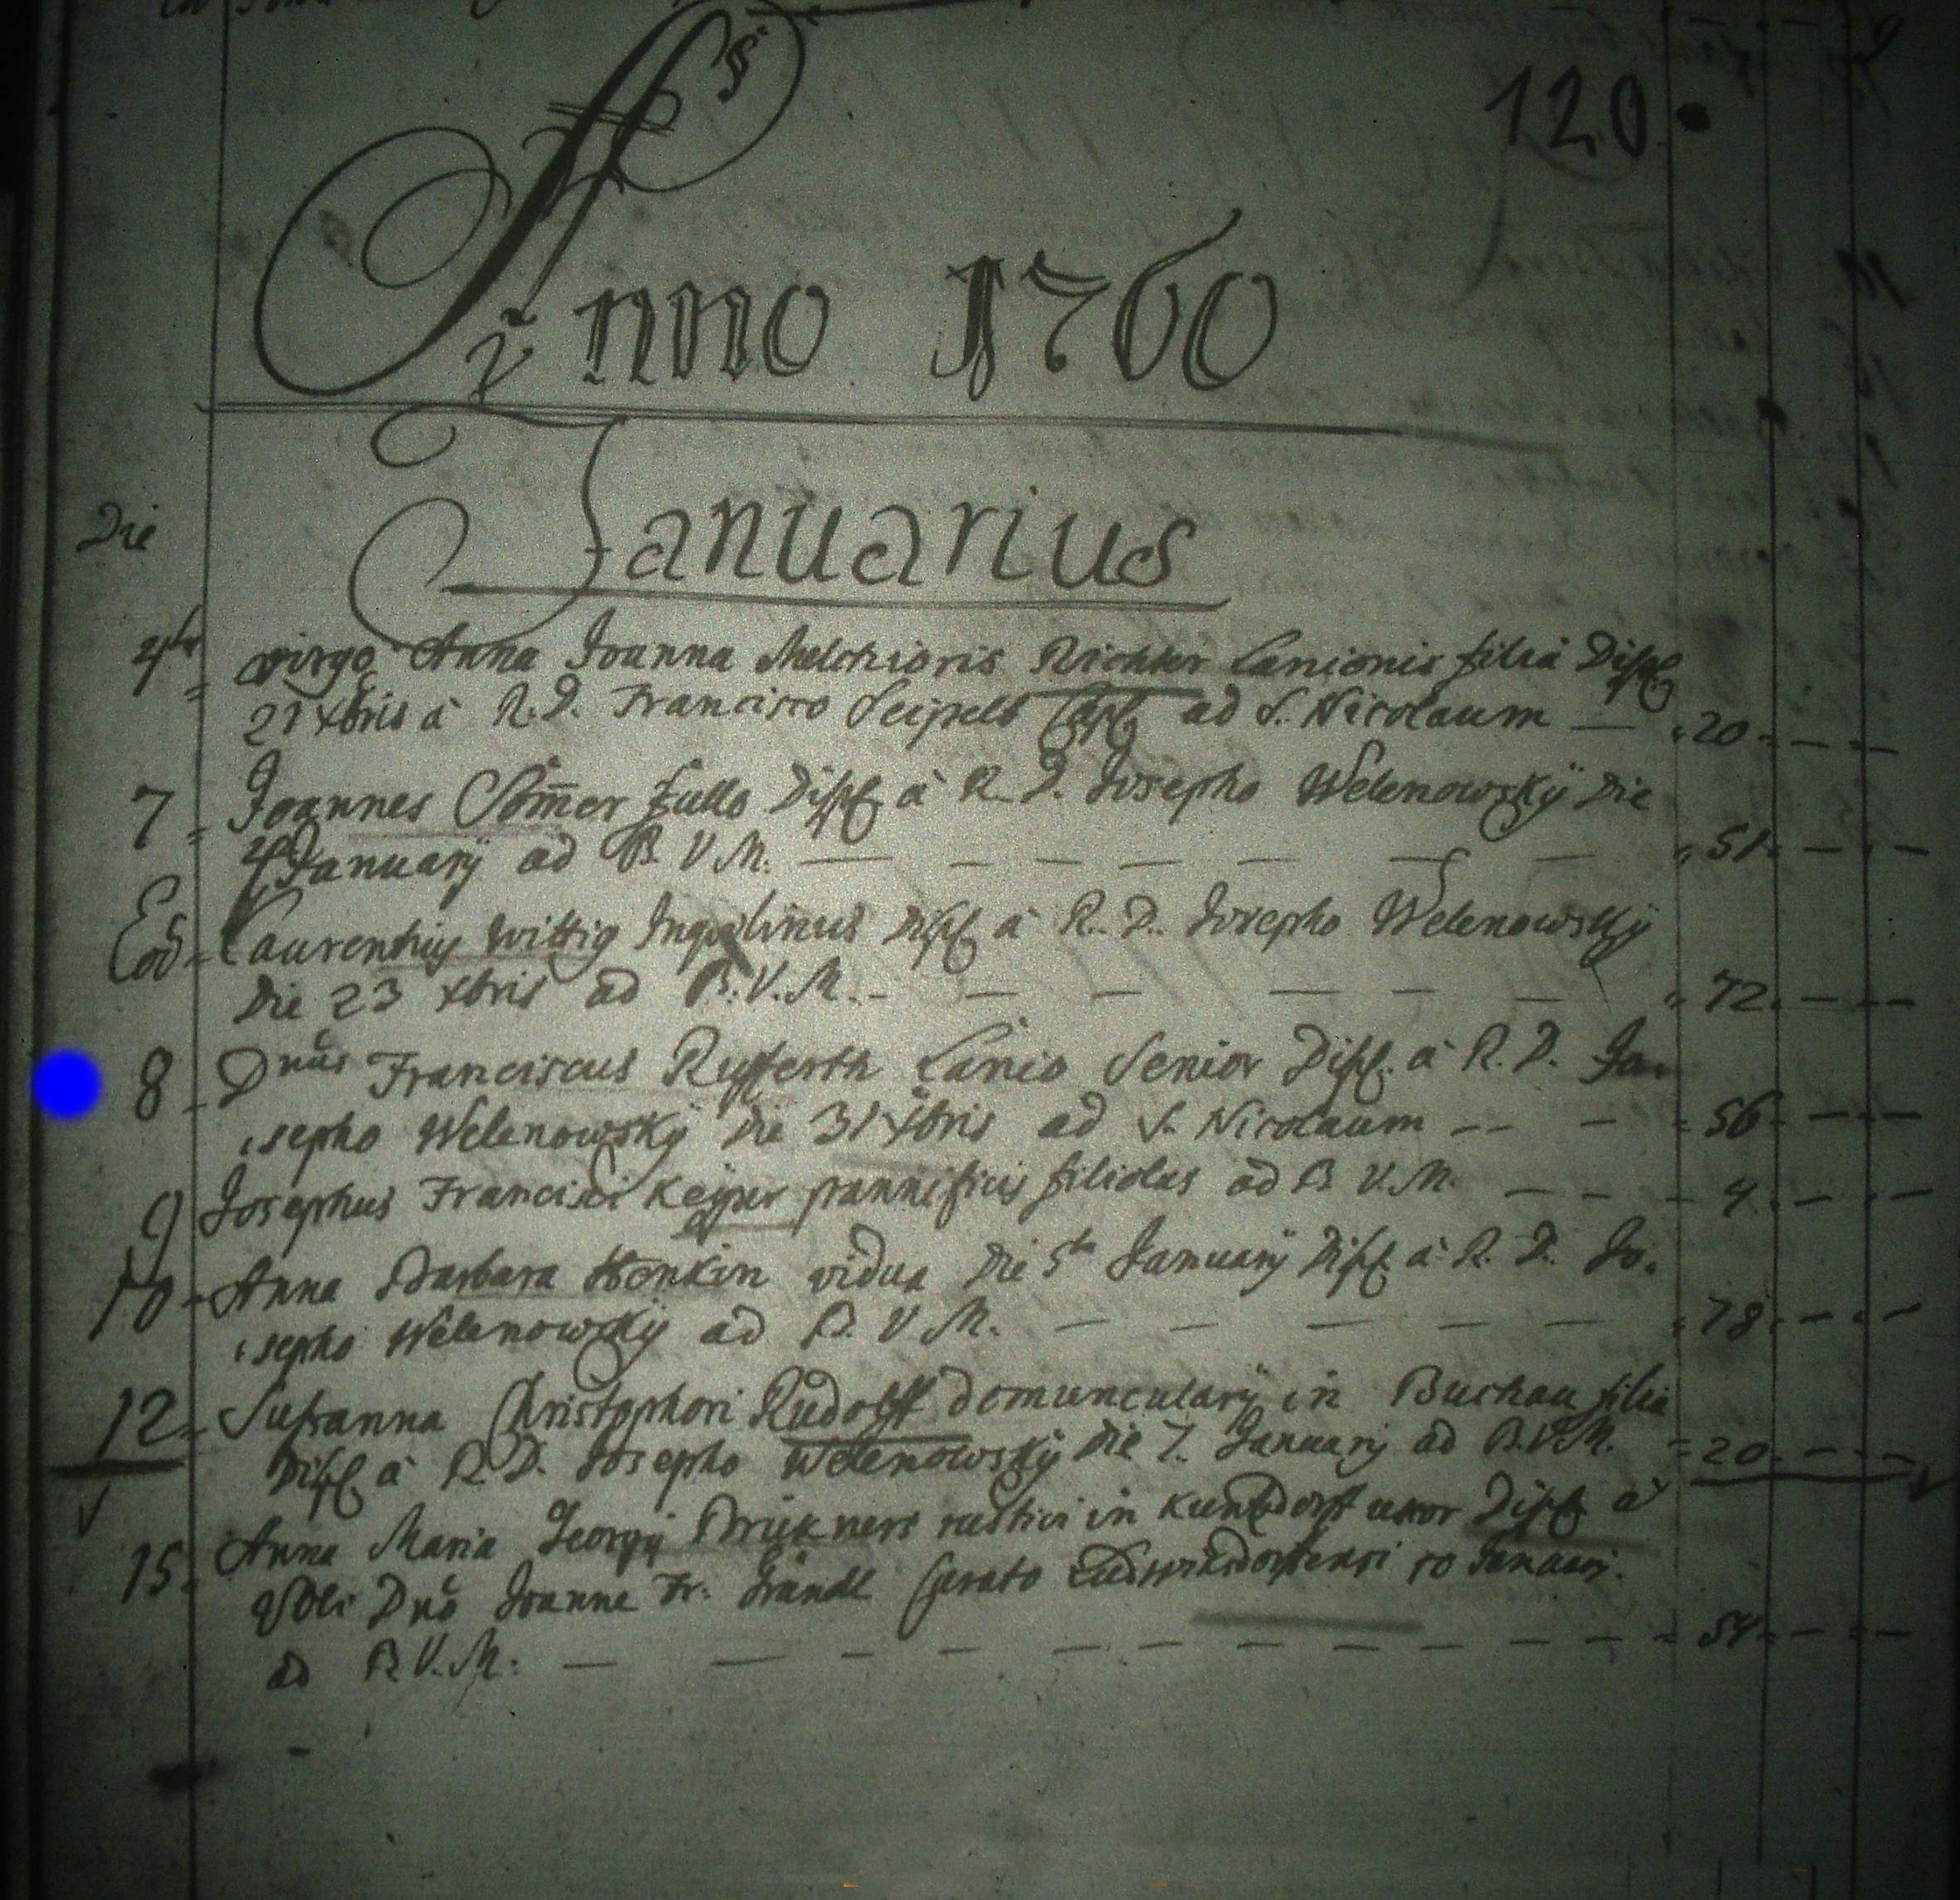 120.
Anno 1760
Januarius
Die
4ta virgo Anna Joanna Melchioris Richter Lanionis filia Disp.
21 Xbris à R.D. Francisco Seipelt Capl. ad S. Nicolaum — 20 - - -
7 Joannes Som̄er fullo Disp. à R. D. Josepho Welenowskÿ Die
4 Januarÿ ad B. V. M. — — — — — — 51 - - -
Eod. Laurentius Wittig Inquilinus Disp. à R. D. Josepho Welenowskÿ
Die 23 Xbris ad B. V. M. - — — — — — 72. - - -
8 Dnus Franciscus Rufferth Lanio Senior Disp. à R. D. Jo-
sepho Welenowskÿ Die 31 Xbris ad S. Nicolaum - - - 56 - - -
9 Josephus Francisci pannificis filiolus ad B. V. M. - - - 4. - - -
10 Anna Barbara Honkin vidua Die 5ta Januarÿ Disp. à R. D. Jo-
sepho Welenowskÿ ad B. V. M. — — — — — 78. - - -
12 Susanna Christophori Rudolff domuncularÿ in Buchau filia
Disp. à R. D. Josepho Welenowskÿ Die 7. Januarÿ ad B.V.M. 20 - - -
15. Anna Maria Georgÿ rustici in uxor Disp. à
Dno Joanne Fr: 10 Januar.
ad B. V. M: — — — — — — — — — 54 - - -